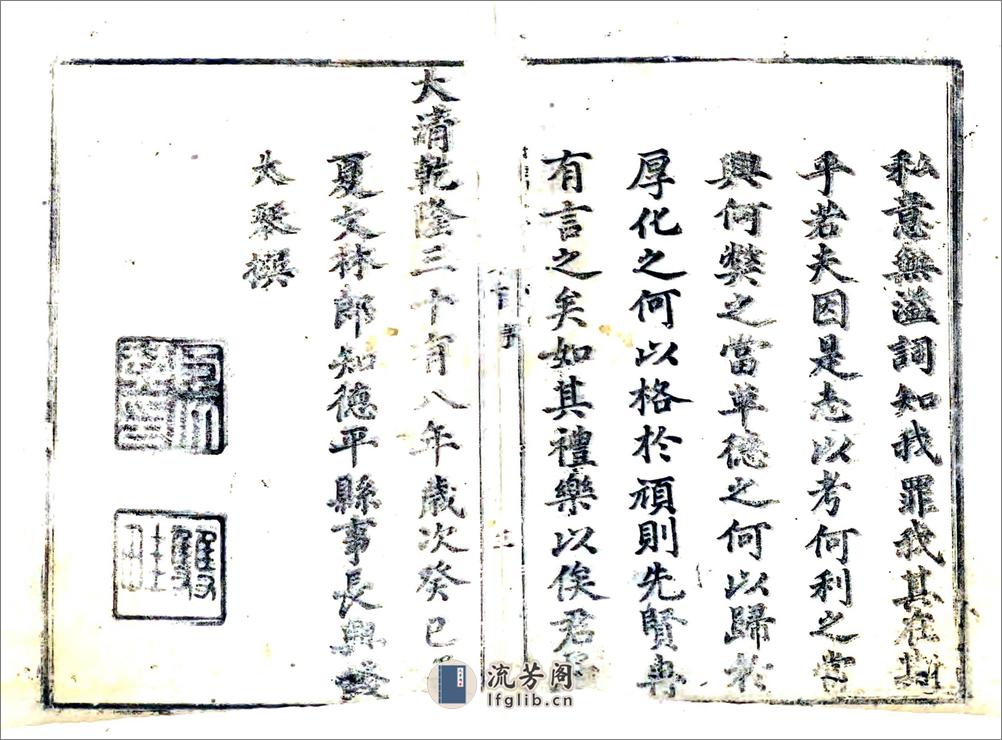 私意無溢詞知我罪我其在斯
乎若夫因是志以考何利之當
興何獘之當革德之何以歸於
厚化之何以格於頑則先賢冉
有言之矣如其禮樂以俟君子
序
三
大清乾隆三十有八年歲次癸巳
夏文林郎知德平縣事長興
大琴撰
流芳阁
lfglib.cn